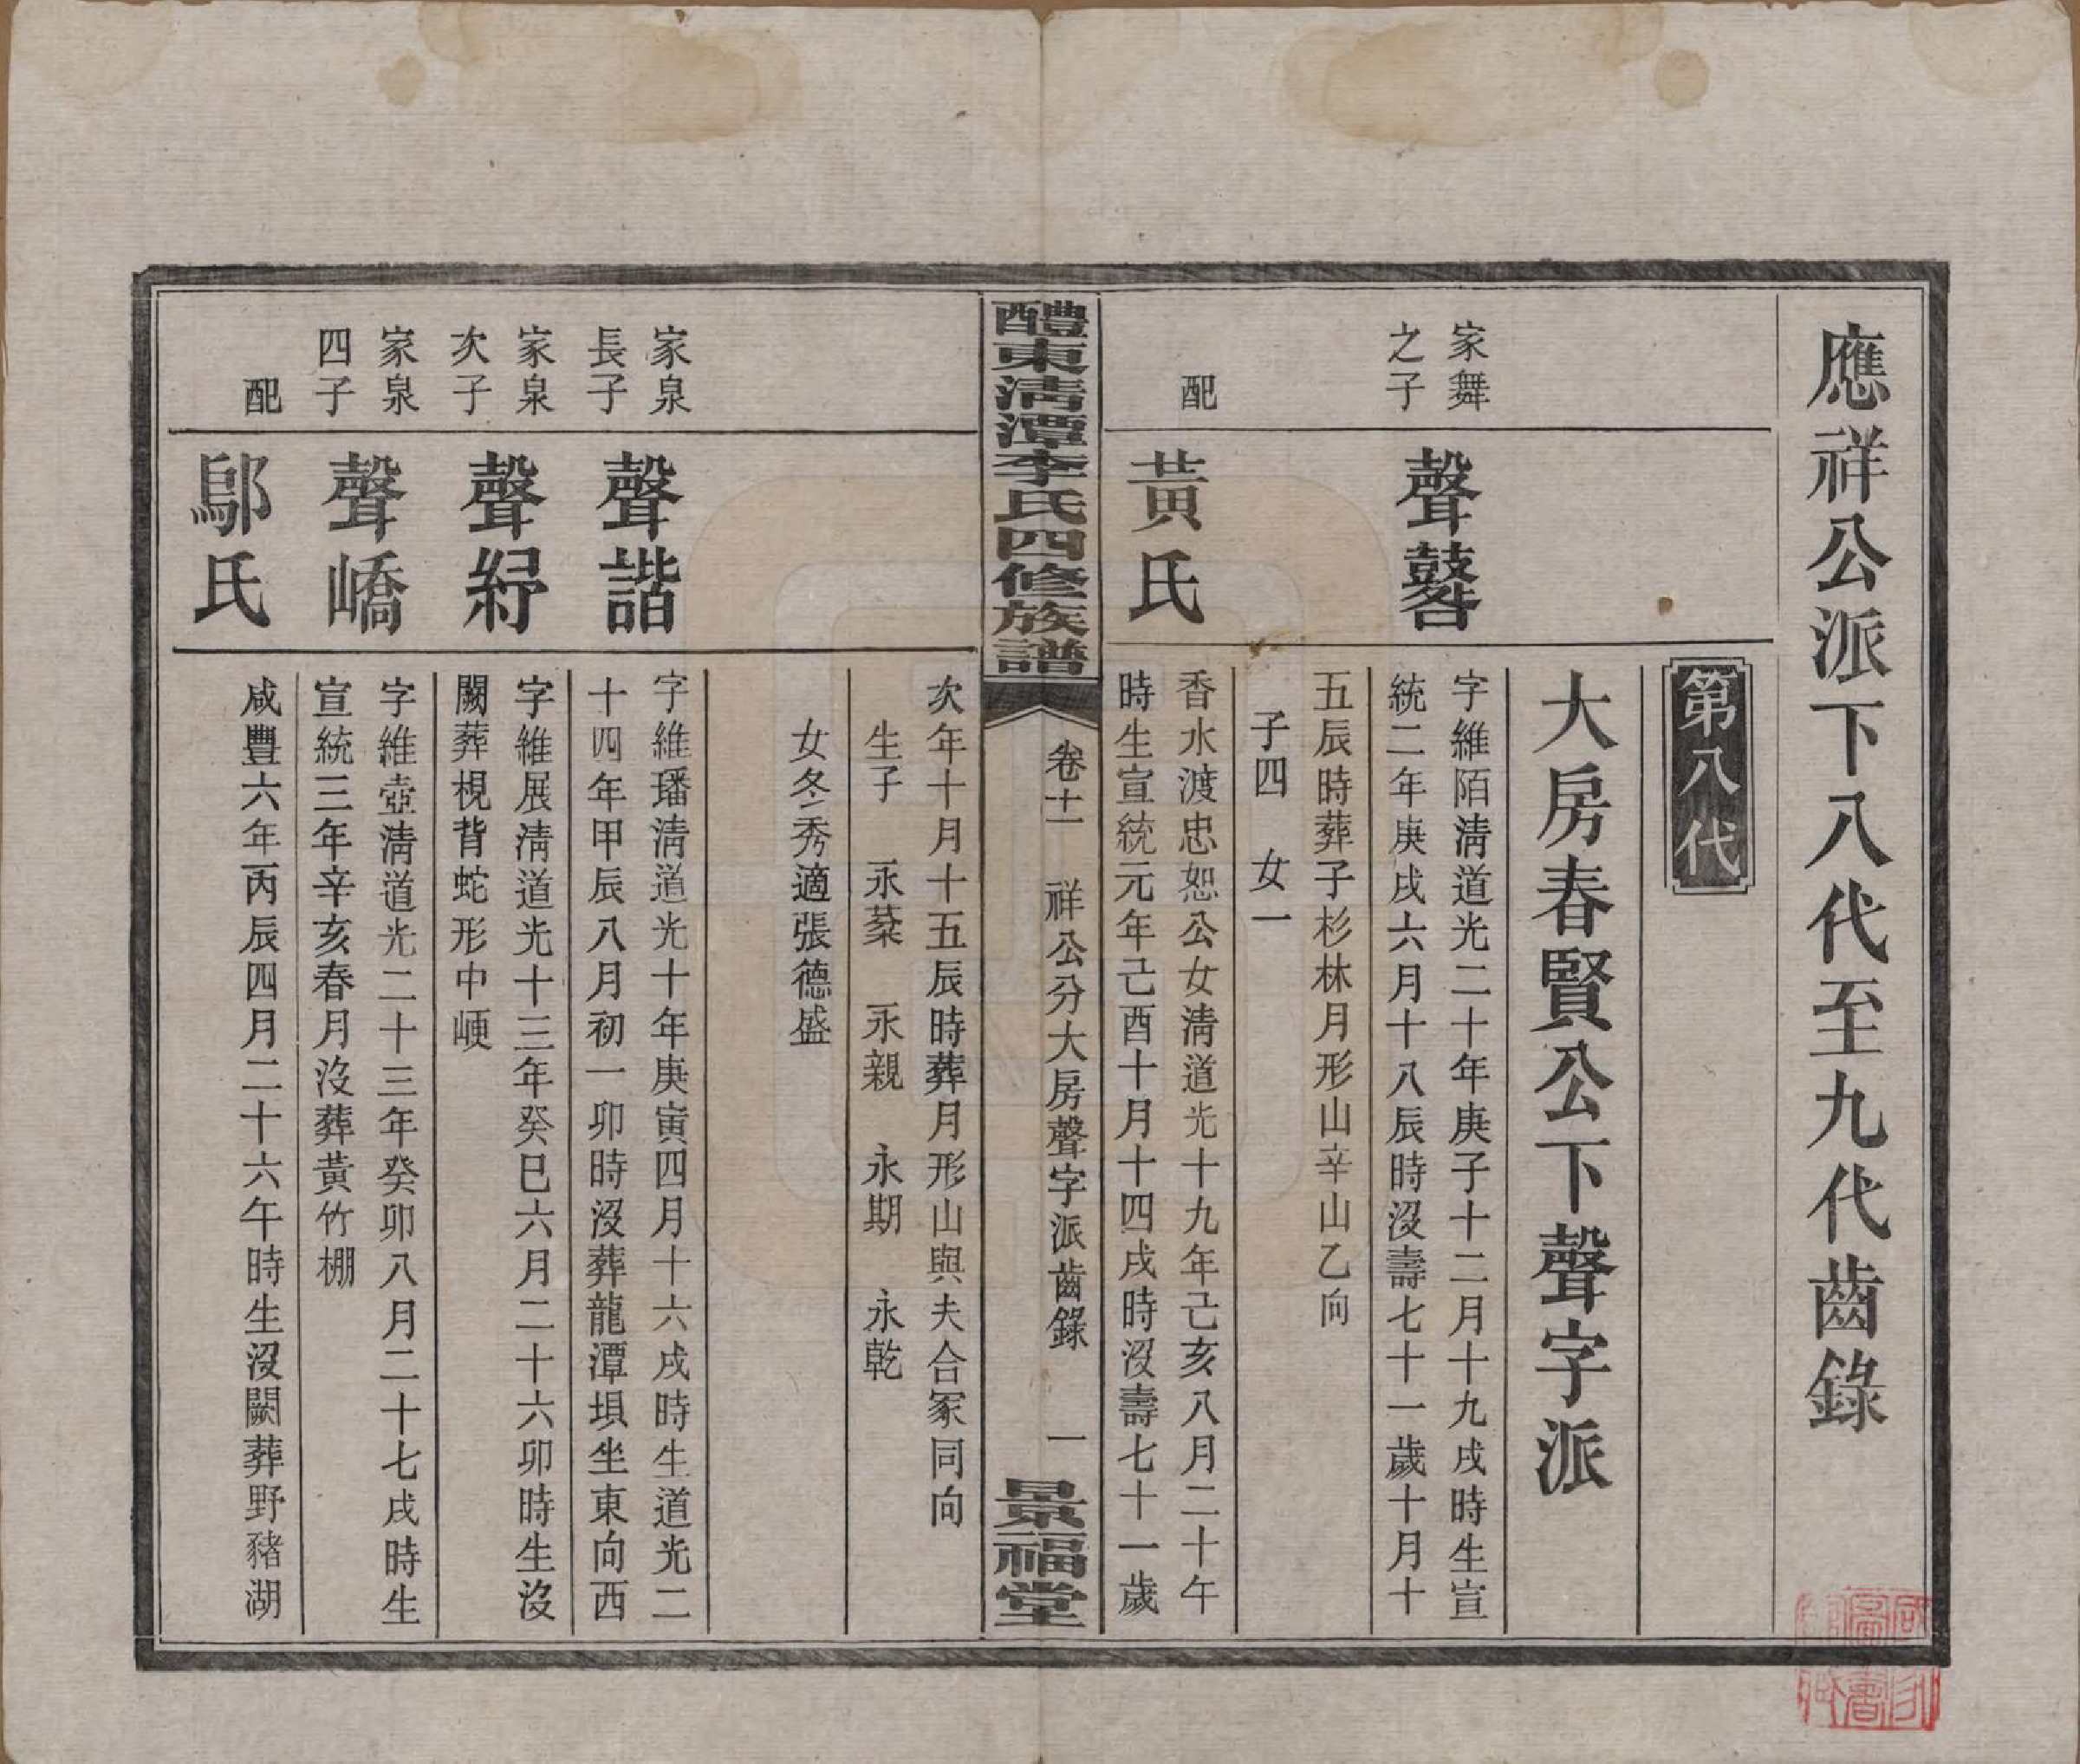 應祥公派下八代至九代齒錄
第八代
大房春賢公下聲字派
家舞
之子
聲鼛
字維陌淸道光二十年庚子十二月十九戌時生宣
統二年庚戌六月十八辰時沒壽七十一歲十月十
五辰時葬子杉林月形山辛山乙向
子四 女一
配
黃氏
香水渡忠恕公女淸道光十九年己亥八月二十午
時生宣統元年己酉十月十四戌時沒壽七十一歲
醴東淸潭李氏四修族譜
卷十一 祥公分大房聲字派齒錄 一
景福堂
次年十月十五辰時葬月形山與夫合冢同向
生子 永棻 永親 永期 永乾
女冬秀適張德盛
家泉
長子
聲諧
字維璠淸道光十年庚寅四月十六戌時生道光二
十四年甲辰八月初一卯時沒葬龍潭垻坐東向西
家泉
次子
聲紆
字維展淸道光十三年癸巳六月二十六卯時生沒
闕葬梘背蛇形中㟍
家泉
四子
聲嶠
字維壺淸道光二十三年癸卯八月二十七戌時生
宣統三年辛亥春月沒葬黃竹棚
配
鄔氏
咸豐六年丙辰四月二十六午時生沒闕葬野豬湖